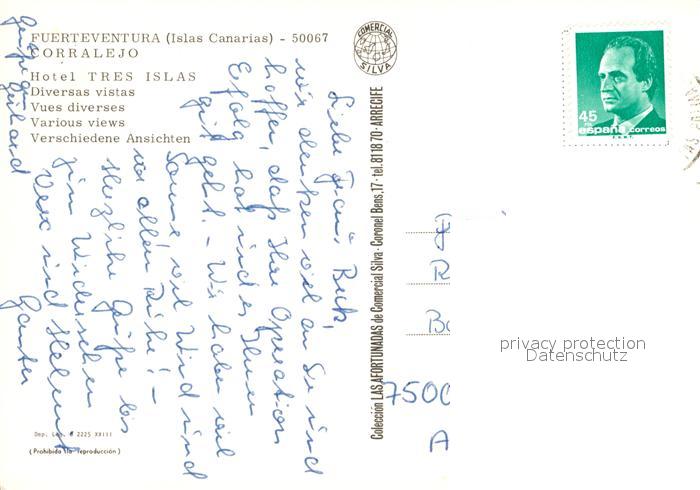 FUERTEVENTURA (Islas Canarias) - 50067
CORRALEJO
Hotel TRES ISLAS
Diversas vistas
Vues diverses
Various views
Verschiedene Ansichten
COMERCIAL
SILVA
45
PTA
españa correos
F.N.M.T.
Liebe Frau Beck,
wir denken viel an Sie und
hoffen, daß Ihre Operation
Erfolg hat und es Ihnen
gut geht. - Wir haben viel
Sonne, viel Wind und
vor allem Ruhe! -
Herzliche Grüße bis
zum Wiedersehen
Vera und Helmut
Ganter
Grüße an
Gerhard
Colección LAS AFORTUNADAS de Comercial Silva - Coronel Bens, 17 - tel. 81 18 70 - ARRECIFE
R
Bo
7500
A
privacy protection
Datenschutz
Dep. Leg. B 2225 XXIII
(Prohibida la reproducción)